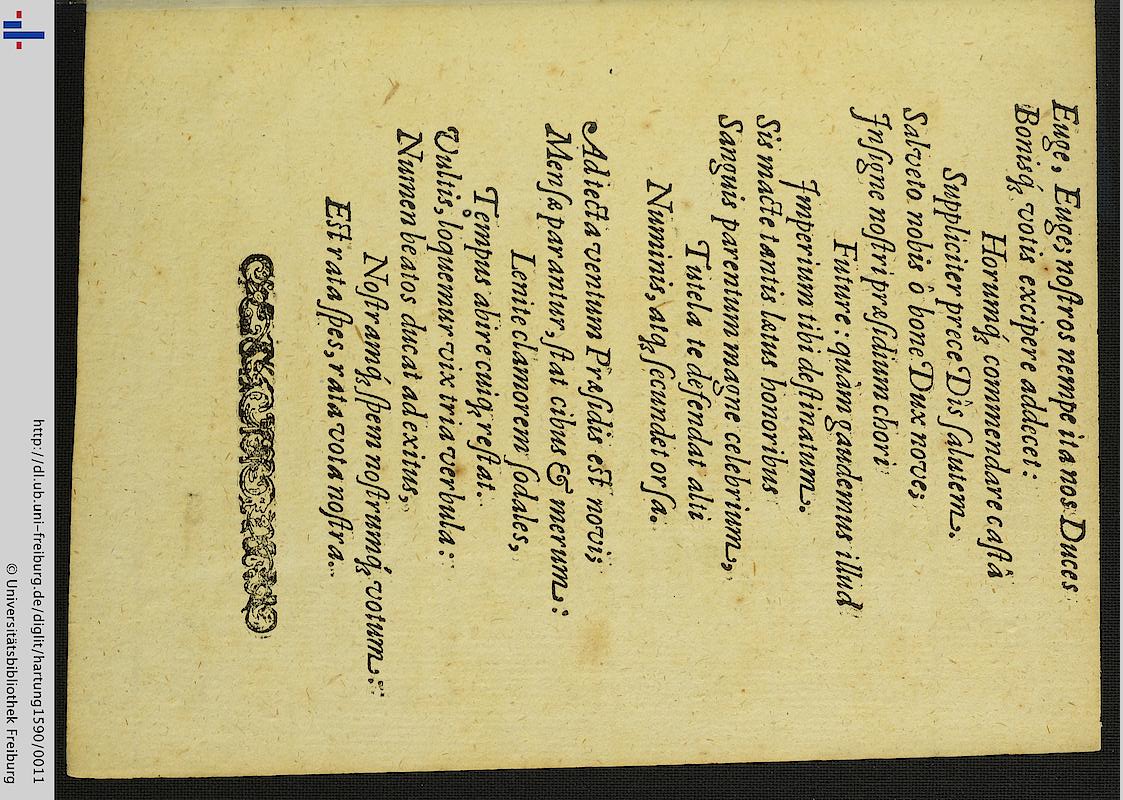 Euge, Euge; noſtros nempe ita nos Duces
Bonisq́; votis excipere addecet:
Horumq́; commendare caſtâ
Suppliciter prece Dîs ſalutem.
Salveto nobis ô bone Dux nove;
Inſigne noſtri præſidium chori
Future: quàm gaudemus illud
Imperium tibi deſtinatum.
Sis macte tantis lætus honoribus
Sanguis parentum magne celebrium,
Tutela te defendat alti
Numinis, atq; ſecundet orſa.
Ad tecta ventum Præſidis eſt novi;
Menſæ parantur, ſtat cibus & merum:
Lenite clamorem ſodales,
Tempus abire cuiq; reſtat.
Vultis, loquemur vix tria verbula:
Numen beatos ducat ad exitus,
Noſtramq́; ſpem noſtrumq́; votum:
Eſt rata ſpes, rata vota noſtra.
http://dl.ub.uni-freiburg.de/diglit/hartung1590/0011
© Universitätsbibliothek Freiburg